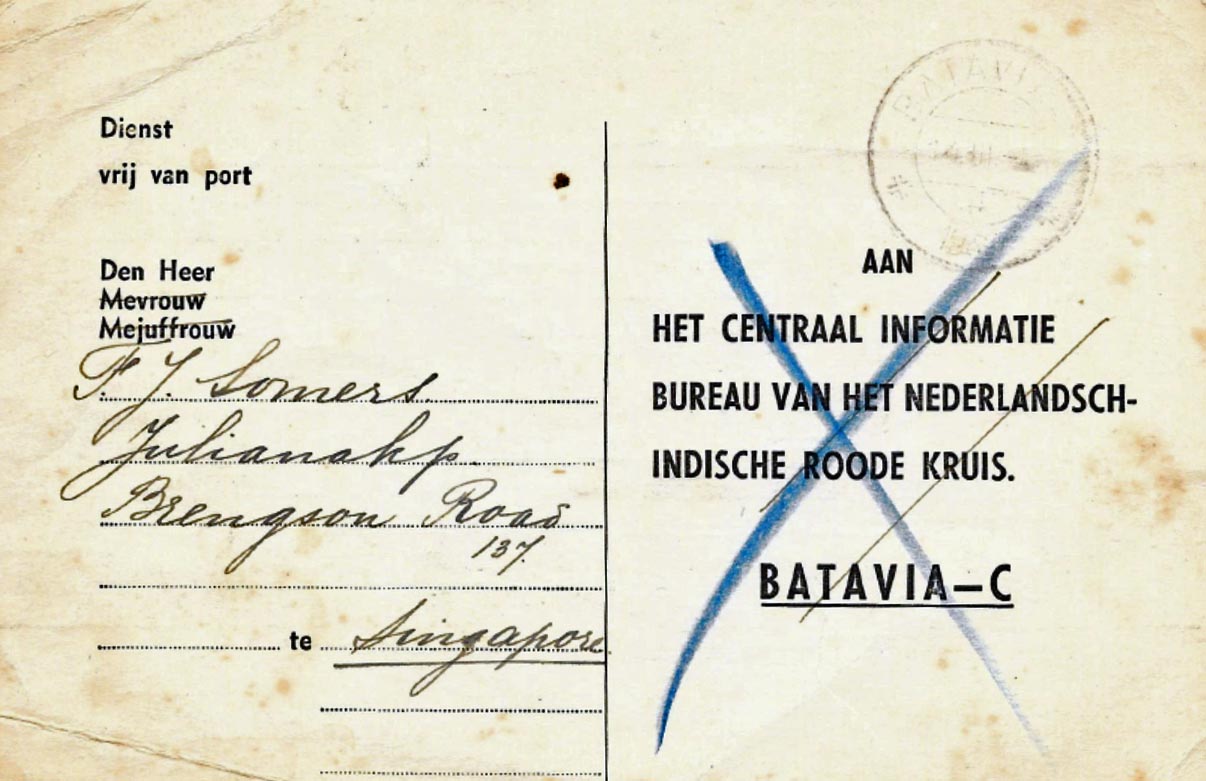 Dienst
vrij van port
Den Heer
Mevrouw
Mejuffrouw
F. J. Somers.
Julianakp.
Brengson Road
137.
te Singapore
BATAVIA
AAN
HET CENTRAAL INFORMATIE
BUREAU VAN HET NEDERLANDSCH-
INDISCHE ROODE KRUIS.
BATAVIA-C